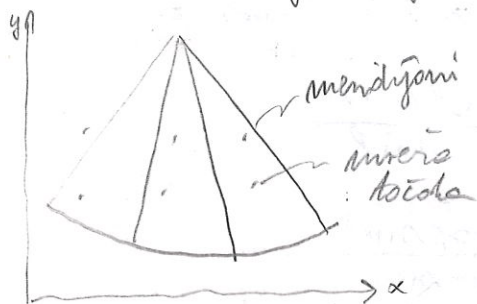 y
meridijani
mreža
točaka
x